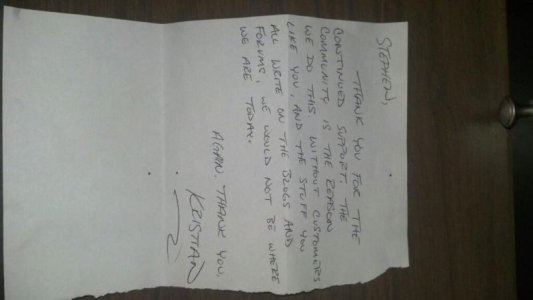 STEPHEN,
THANK YOU FOR THE
CONTINUED SUPPORT. THE
COMMUNITY IS THE REASON
WE DO THIS WITHOUT CUSTOMERS
LIKE YOU, AND THE STUFF YOU
ALL WRITE ON THE BLOGS AND
FORUMS, WE WOULD NOT BE WHERE
WE ARE TODAY.
AGAIN. THANK YOU.
KRISTIAN